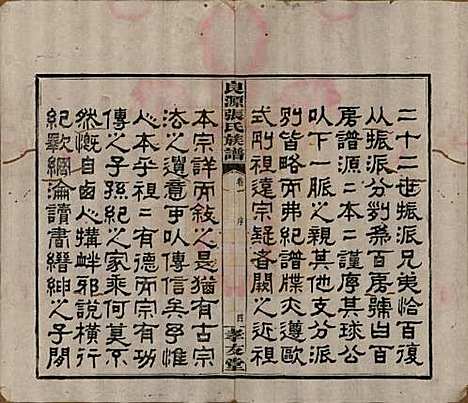 二十二世振派兄夷洽百復
从振派分剟希百房號白百
房譜源二本二謹序其球公
㠯下一脈之親其他支分派
別皆略而弗紀譜牒夾遵歐
式剮祖遠宗疑者闕之近祖
良源張氏族譜
卷一
序
四
孝友堂
本宗詳而敘之是猶有古宗
法之遺意乎㠯傳信吳乎惟
人本乎祖二有德而宗有功
傳之子孫紀之家乘何莫不
然慨自鹵人搆衅邪說橫行
紀歝綱淪讀書縉紳之子閒